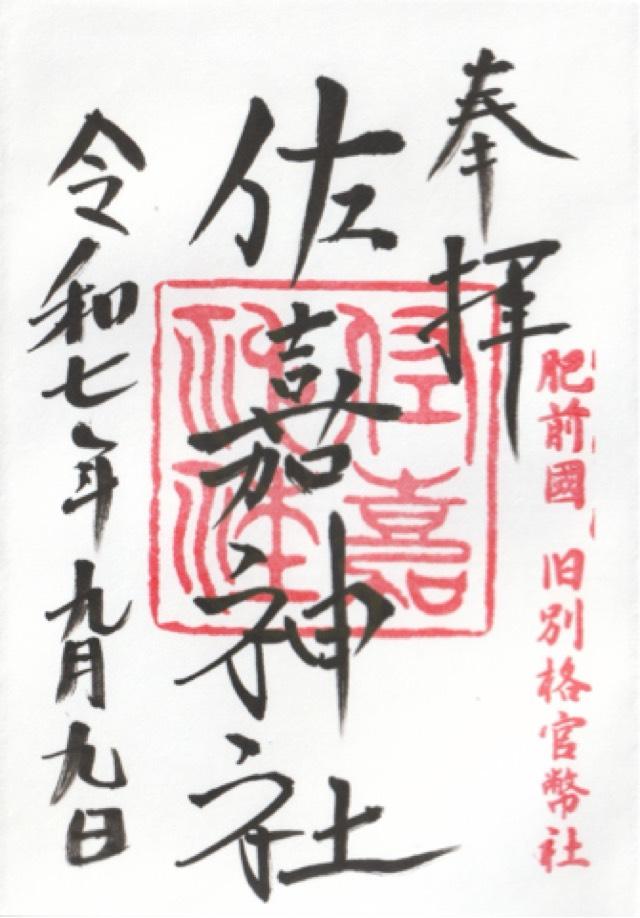 奉拝
肥前國 旧別格官幣社
佐嘉神社
佐嘉神社
令和七年九月九日